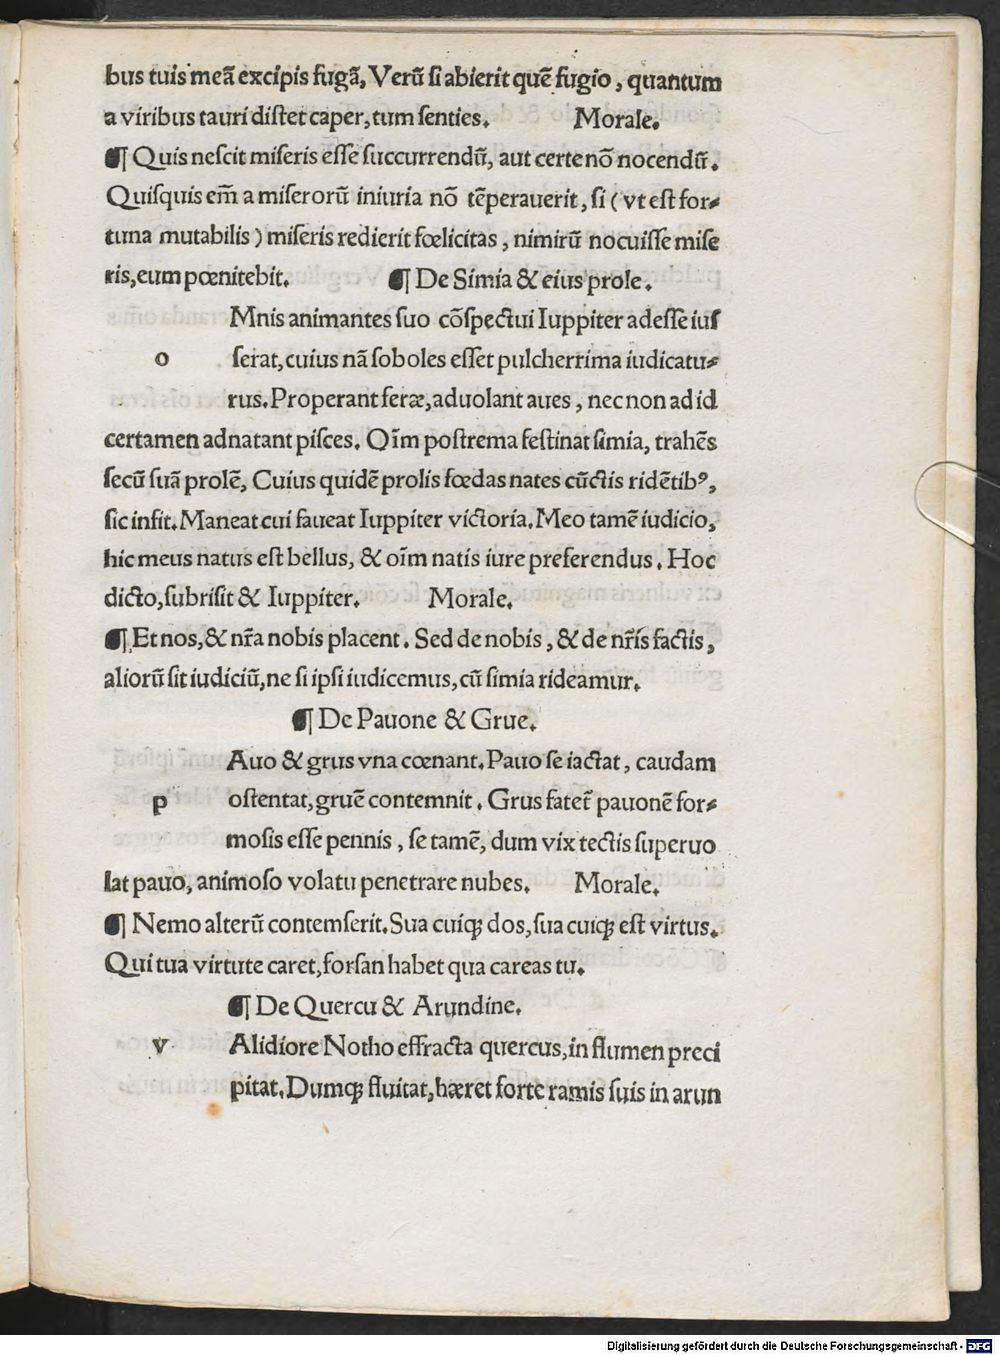 bus tuis meã excipis fugã, Verũ ſi abierit quẽ fugio, quantum
a viribus tauri diſtet caper, tum ſenties. Morale.
¶ Quis neſcit miſeris eſſe ſuccurrendũ, aut certe nõ nocendũ.
Quiſquis em̃ a miſerorũ iniuria nõ tẽperauerit, ſi ( vt eſt for⸗
tuna mutabilis ) miſeris redierit fœlicitas, nimirũ nocuiſſe miſe
ris, eum pœnitebit. ¶ De Simia & eius prole.
Mnis animantes ſuo cõſpectui Iuppiter adeſſe iuſ
o ſerat, cuius nã ſoboles eſſet pulcherrima iudicatu⸗
rus. Properant feræ, aduolant aues, nec non ad id
certamen adnatant piſces. Oĩm poſtrema feſtinat ſimia, trahẽs
ſecũ ſuã prolẽ, Cuius quidẽ prolis fœdas nates cũctis ridẽtibꝰ,
ſic infit. Maneat cui faueat Iuppiter victoria. Meo tamẽ iudicio,
hic meus natus eſt bellus, & oĩm natis iure preferendus. Hoc
dicto, ſubriſit & Iuppiter. Morale.
¶ Et nos, & nr̃a nobis placent. Sed de nobis, & de nr̃is factis,
aliorũ ſit iudiciũ, ne ſi ipſi iudicemus, cũ ſimia rideamur.
¶ De Pauone & Grue.
Auo & grus vna cœnant. Pauo ſe iactat, caudam
p oſtentat, gruẽ contemnit. Grus fatet᷑ pauonẽ for⸗
moſis eſſe pennis, ſe tamẽ, dum vix tectis ſuperuo
lat pauo, animoſo volatu penetrare nubes. Morale.
¶ Nemo alterũ contemſerit. Sua cuiqꝫ dos, ſua cuiqꝫ eſt virtus.
Qui tua virtute caret, forſan habet qua careas tu.
¶ De Quercu & Arundine.
v Alidiore Notho effracta quercus, in flumen preci
pitat. Dumqꝫ fluitat, hæret forte ramis ſuis in arun
Digitalisierung gefördert durch die Deutsche Forschungsgemeinschaft - DFG